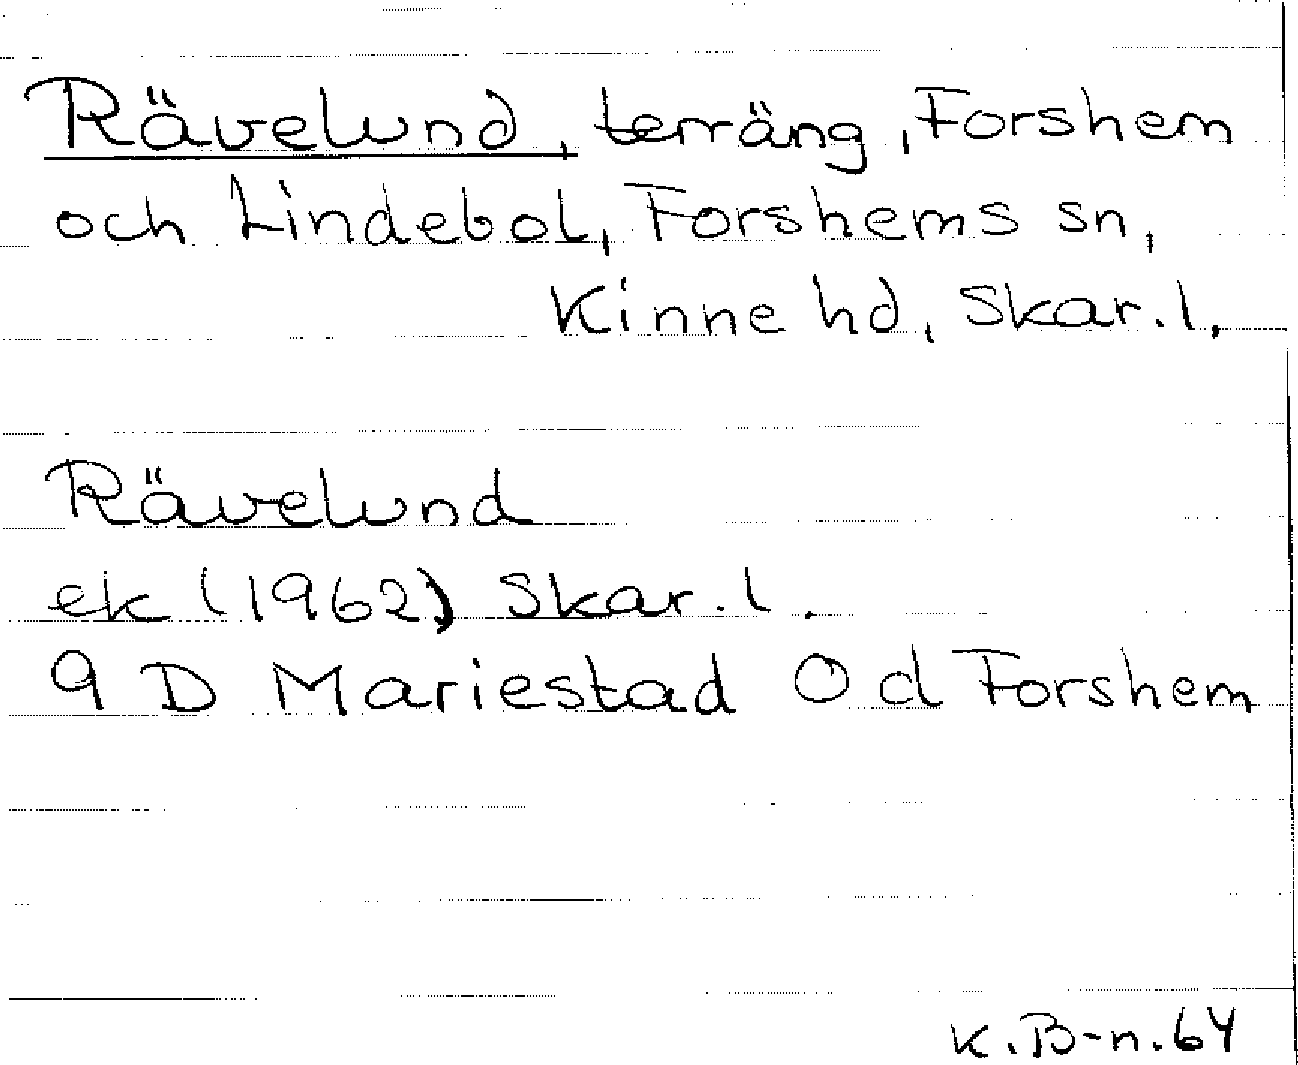 Rävelund, terräng, Forshem
och Lindebol, Forshems sn,
Kinne hd, Skar.l.
Rävelund
ek (1962) Skar.l.
9 D Mariestad O d Forshem
K.B-n.64